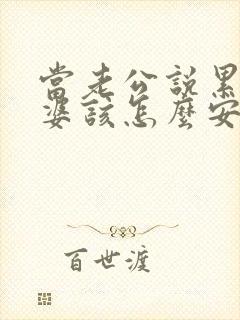 當老公說累
婆該怎麼安
百世渡